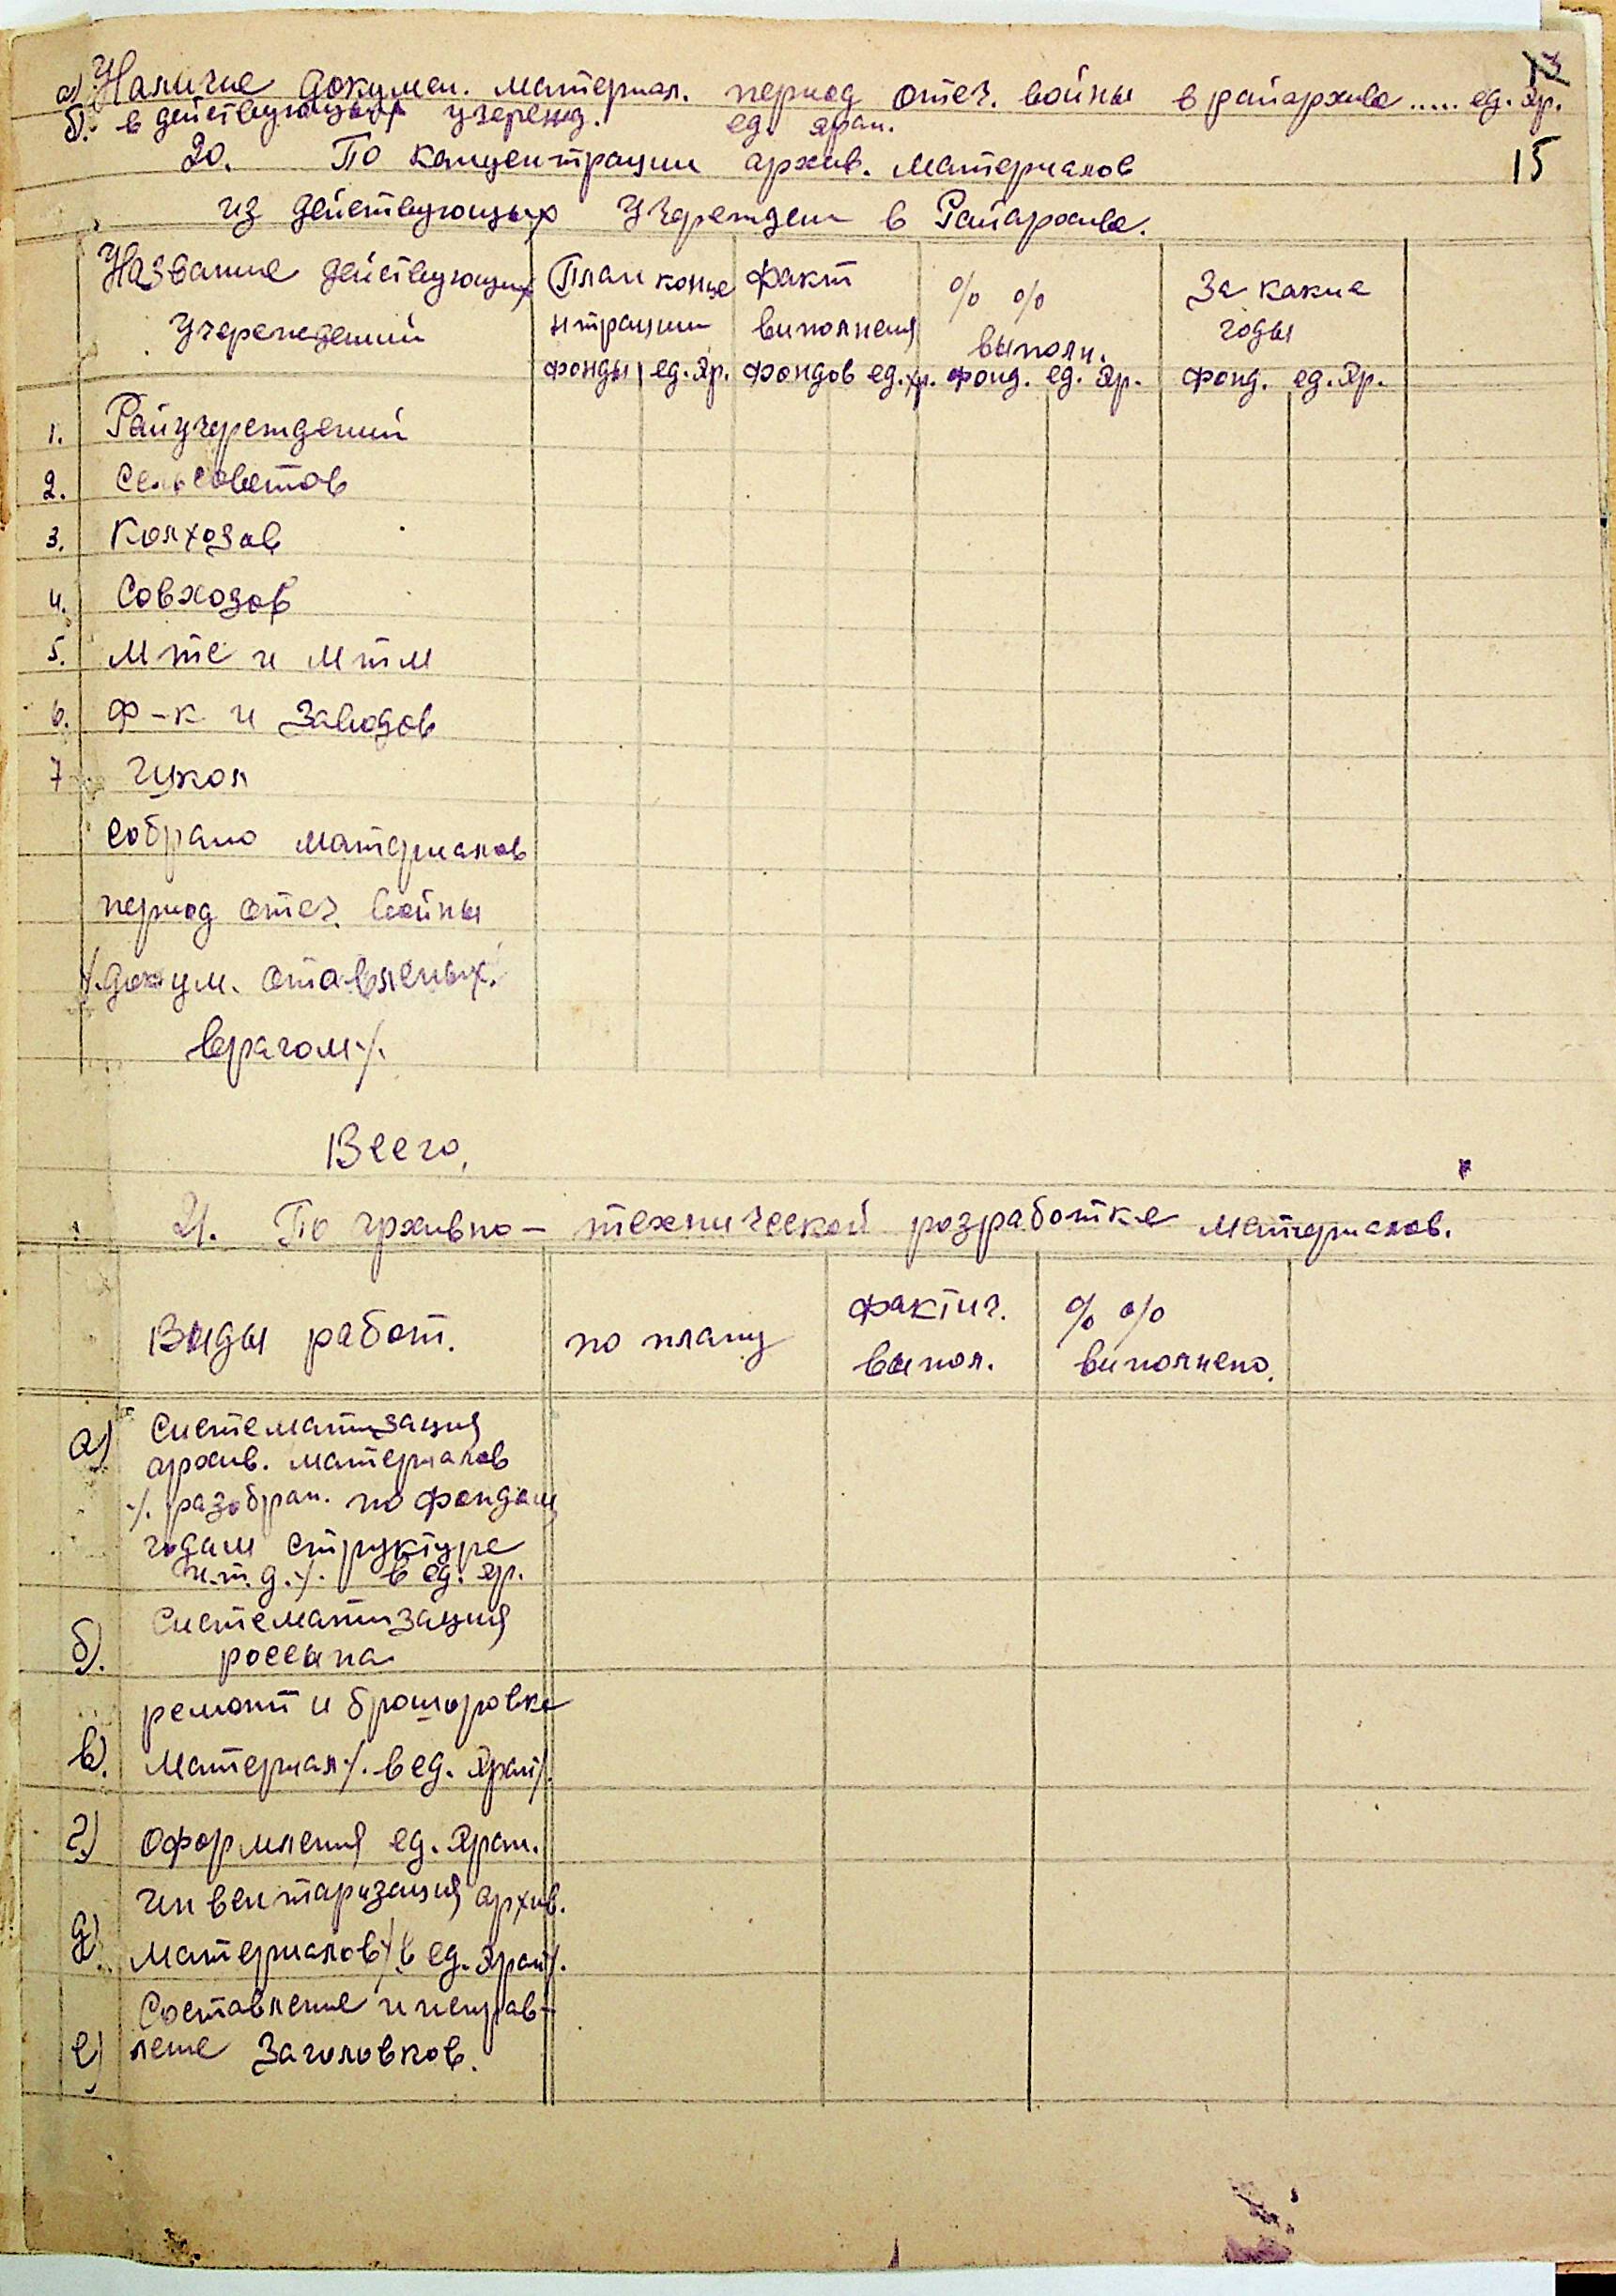 а) Наличие докумен. материал. период отеч. войны в райархиве ..... ед. хр.
б). в действующых учрежд. ед. хран.
15
20. По концентрации архив. материалов
из действующых учрежден в Райархиве.
Название действующих План конце факт % % За какие
учереждений нтрации виполнения выполн. годы
фонды ед. хр. фондов ед. хр. фонд. ед. хр. фонд. ед. хр.
1. Райучреждений
2. Сельсоветов
3. Колхозов
4. Совхозов
5. мтс и мтм
6. ф-к и заводов
7 школ
собрано материалов
период отеч. войны
/.докум. отавленых.
врагом./.
Всего.
21. По архивно-технической розработке материалов.
Виды работ. по плану фактич. % %
выпол. виполнено.
а) Систематизация
архив. материалов
./. разобран. по фондам
годам структуре
и.т.д./. в ед. хр.
б). Систематизация
россыпа
ремонт и брошюровка
в). материал/. в ед. хран/.
г.) Оформления ед. хран.
инвентаризация архив.
д). материалов/.в ед. хран/.
Составление и исправ-
е) ление заголовков.